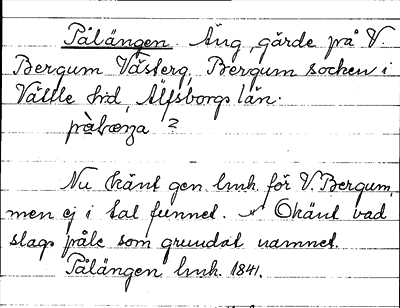 Pålängen. Äng, gärde på V.
Bergum Västerg, Bergum socken i
Vättle hd, Älfsborgs län.
?
Nu känt gen lmk. för V. Bergum,
men ej i tal funnet. Okänt vad
slags påle som grundat namnet.
Pålängen lmk. 1841.